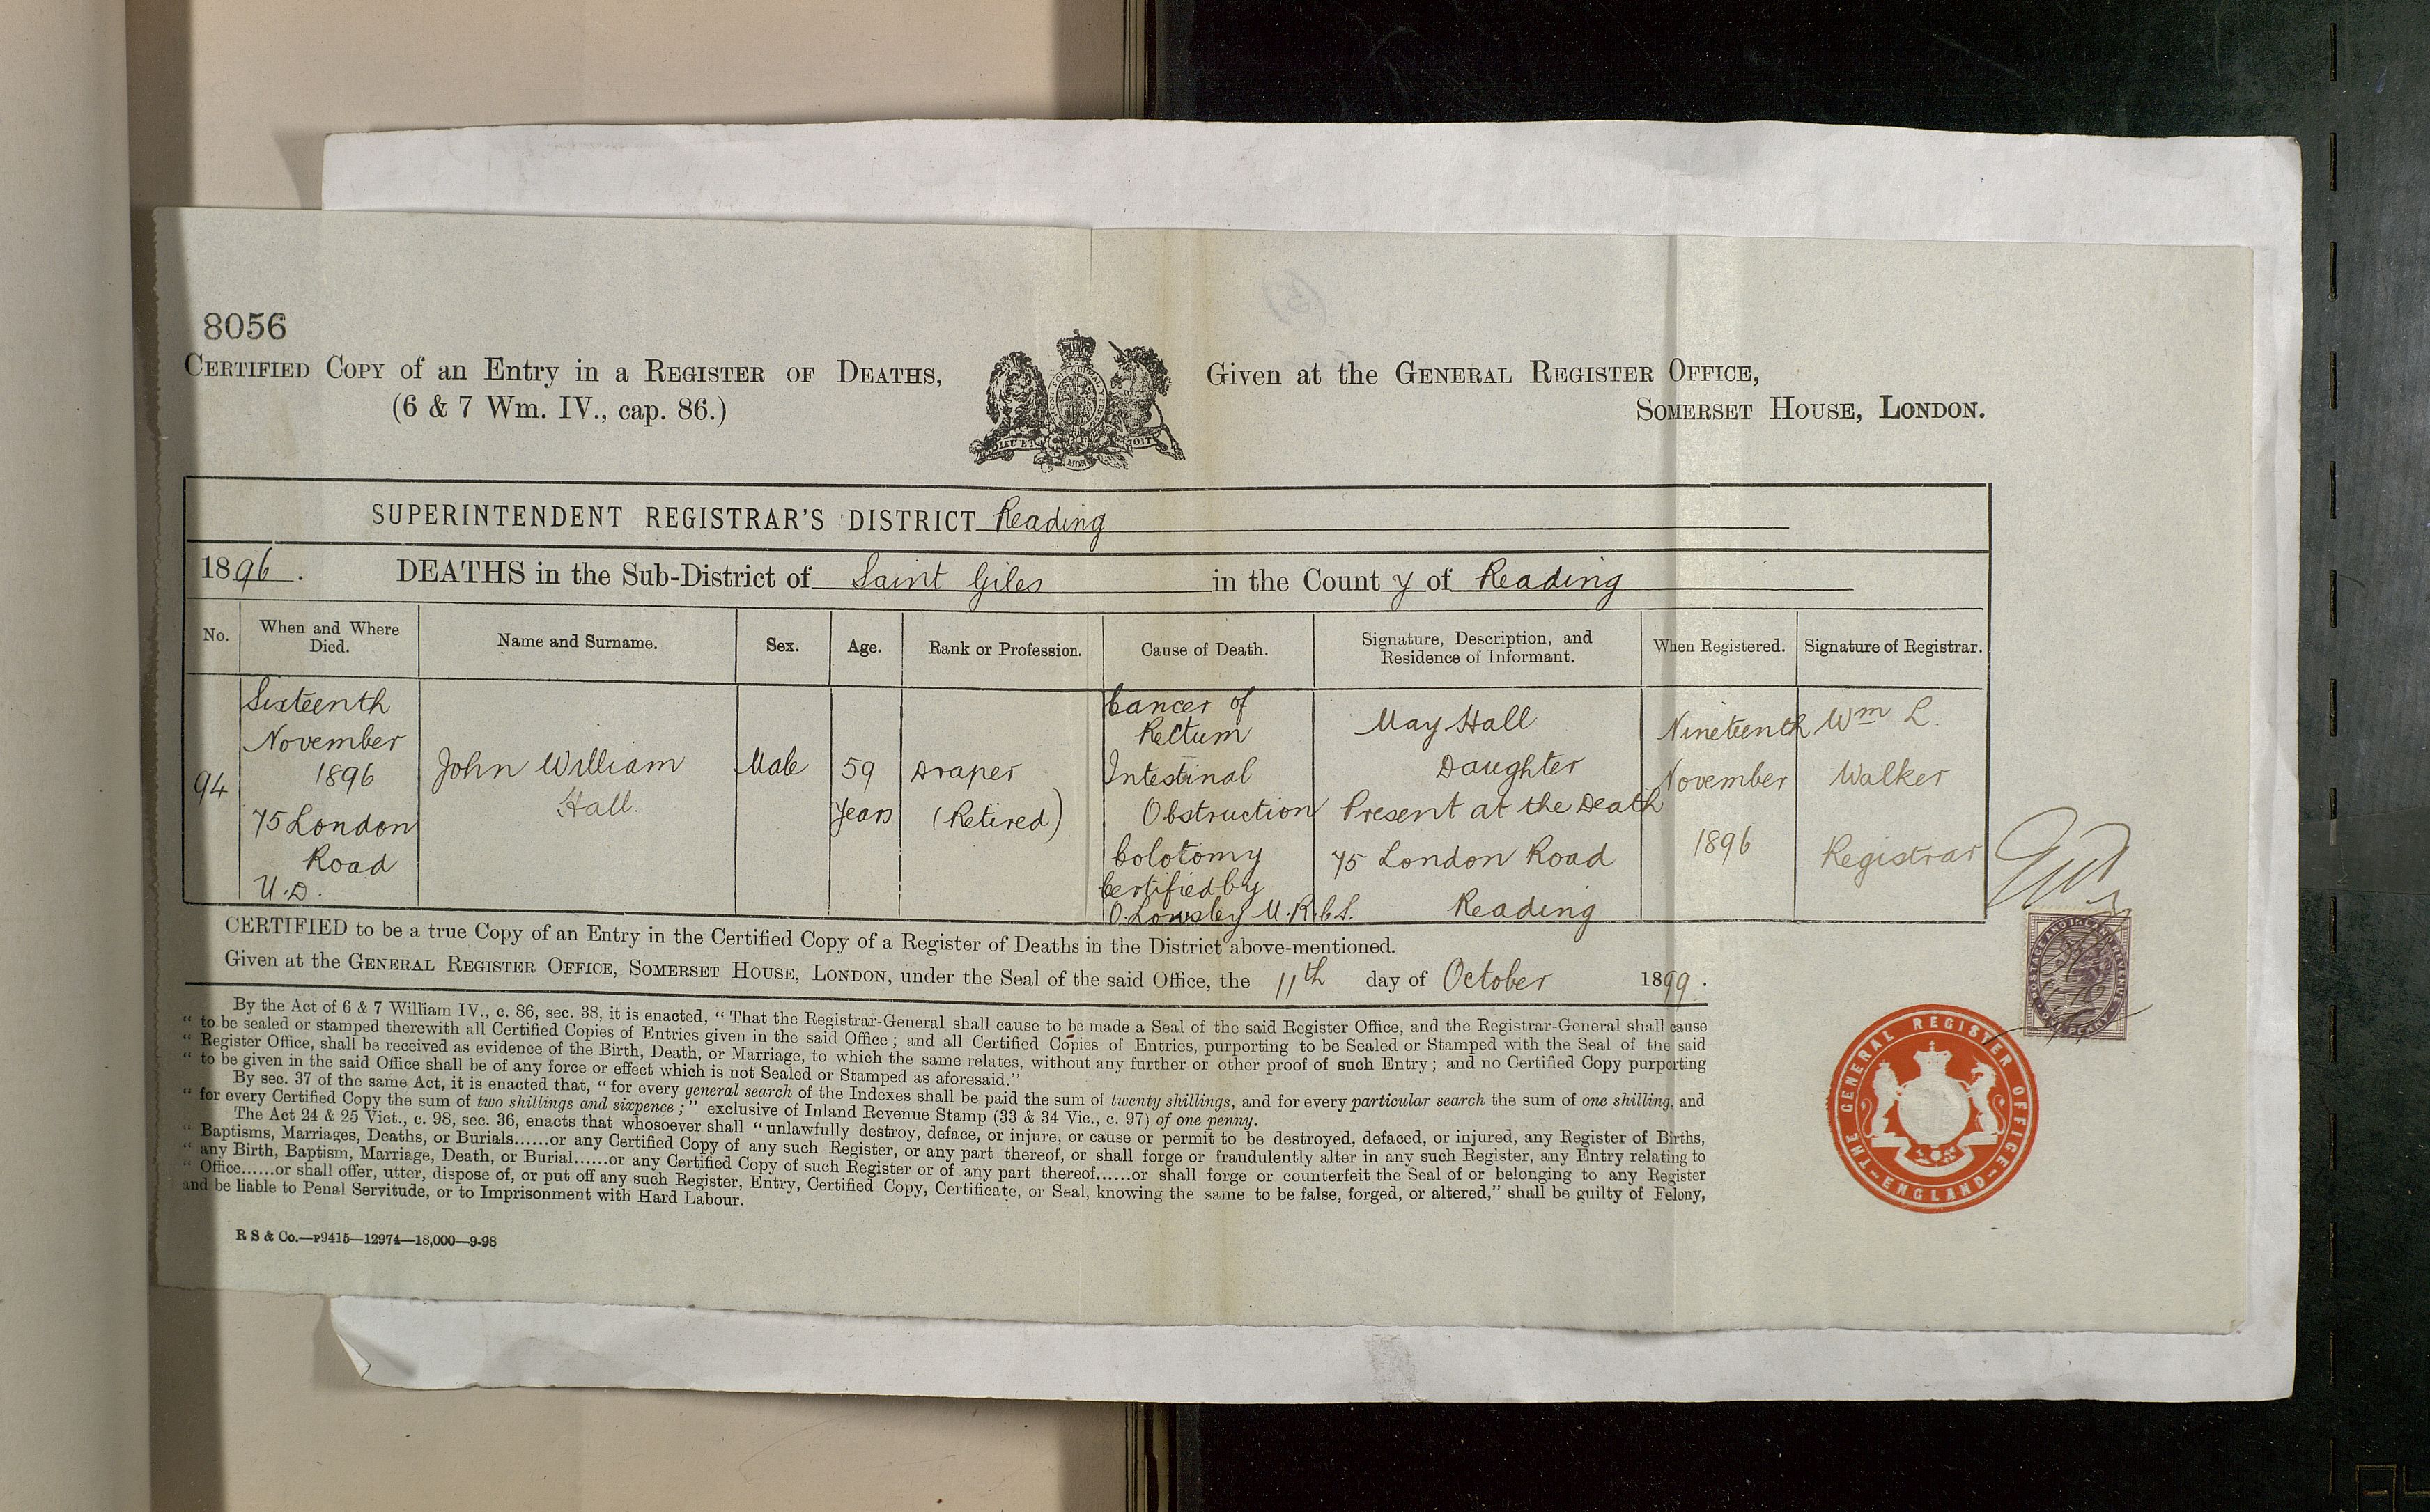 8056
CERTIFIED COPY of an Entry in a REGISTER OF DEATHS,
(6 & 7 Wm. IV., cap. 86.)
DIEU ET MON DROIT
Given at the GENERAL REGISTER OFFICE,
SOMERSET HOUSE, LONDON.
SUPERINTENDENT REGISTRAR'S DISTRICT Reading
1896. DEATHS in the Sub-District of Saint Giles in the County of Reading
No.
When and Where
Died.
Name and Surname.
Sex.
Age.
Rank or Profession.
Cause of Death.
Signature, Description, and
Residence of Informant.
When Registered.
Signature of Registrar.
94
Sixteenth
November
1896
75 London
Road
U.D.
John William
Hall.
Male
59
Years
Draper
(Retired)
Cancer of
Rectum
Intestinal
Obstruction
Colotomy
Certified by
O. Lowsley M.R.C.S.
May Hall
Daughter
Present at the Death
75 London Road
Reading
Nineteenth
November
1896
Wm L.
Walker
Registrar
CERTIFIED to be a true Copy of an Entry in the Certified Copy of a Register of Deaths in the District above-mentioned.
Given at the GENERAL REGISTER OFFICE, SOMERSET HOUSE, LONDON, under the Seal of the said Office, the 11th day of October 1899.
By the Act of 6 & 7 William IV., c. 86, sec. 38, it is enacted, "That the Registrar-General shall cause to be made a Seal of the said Register Office, and the Registrar-General shall cause
"to be sealed or stamped therewith all Certified Copies of Entries given in the said Office; and all Certified Copies of Entries, purporting to be Sealed or Stamped with the Seal of the said
"Register Office, shall be received as evidence of the Birth, Death, or Marriage, to which the same relates, without any further or other proof of such Entry; and no Certified Copy purporting
"to be given in the said Office shall be of any force or effect which is not Sealed or Stamped as aforesaid."
By sec. 37 of the same Act, it is enacted that, "for every general search of the Indexes shall be paid the sum of twenty shillings, and for every particular search the sum of one shilling, and
"for every Certified Copy the sum of two shillings and sixpence;" exclusive of Inland Revenue Stamp (33 & 34 Vic., c. 97) of one penny.
The Act 24 & 25 Vict., c. 98, sec. 36, enacts that whosoever shall "unlawfully destroy, deface, or injure, or cause or permit to be destroyed, defaced, or injured, any Register of Births,
"Baptisms, Marriages, Deaths, or Burials......or any Certified Copy of any such Register, or any part thereof, or shall forge or fraudulently alter in any such Register, any Entry relating to
"any Birth, Baptism, Marriage, Death, or Burial......or any Certified Copy of such Register or of any part thereof......or shall forge or counterfeit the Seal of or belonging to any Register
"Office......or shall offer, utter, dispose of, or put off any such Register, Entry, Certified Copy, Certificate, or Seal, knowing the same to be false, forged, or altered," shall be guilty of Felony,
and be liable to Penal Servitude, or to Imprisonment with Hard Labour.
R S & Co.—P9415—12974—18,000—9-98
POSTAGE AND INLAND REVENUE
ONE PENNY
THE GENERAL REGISTER OFFICE
ENGLAND